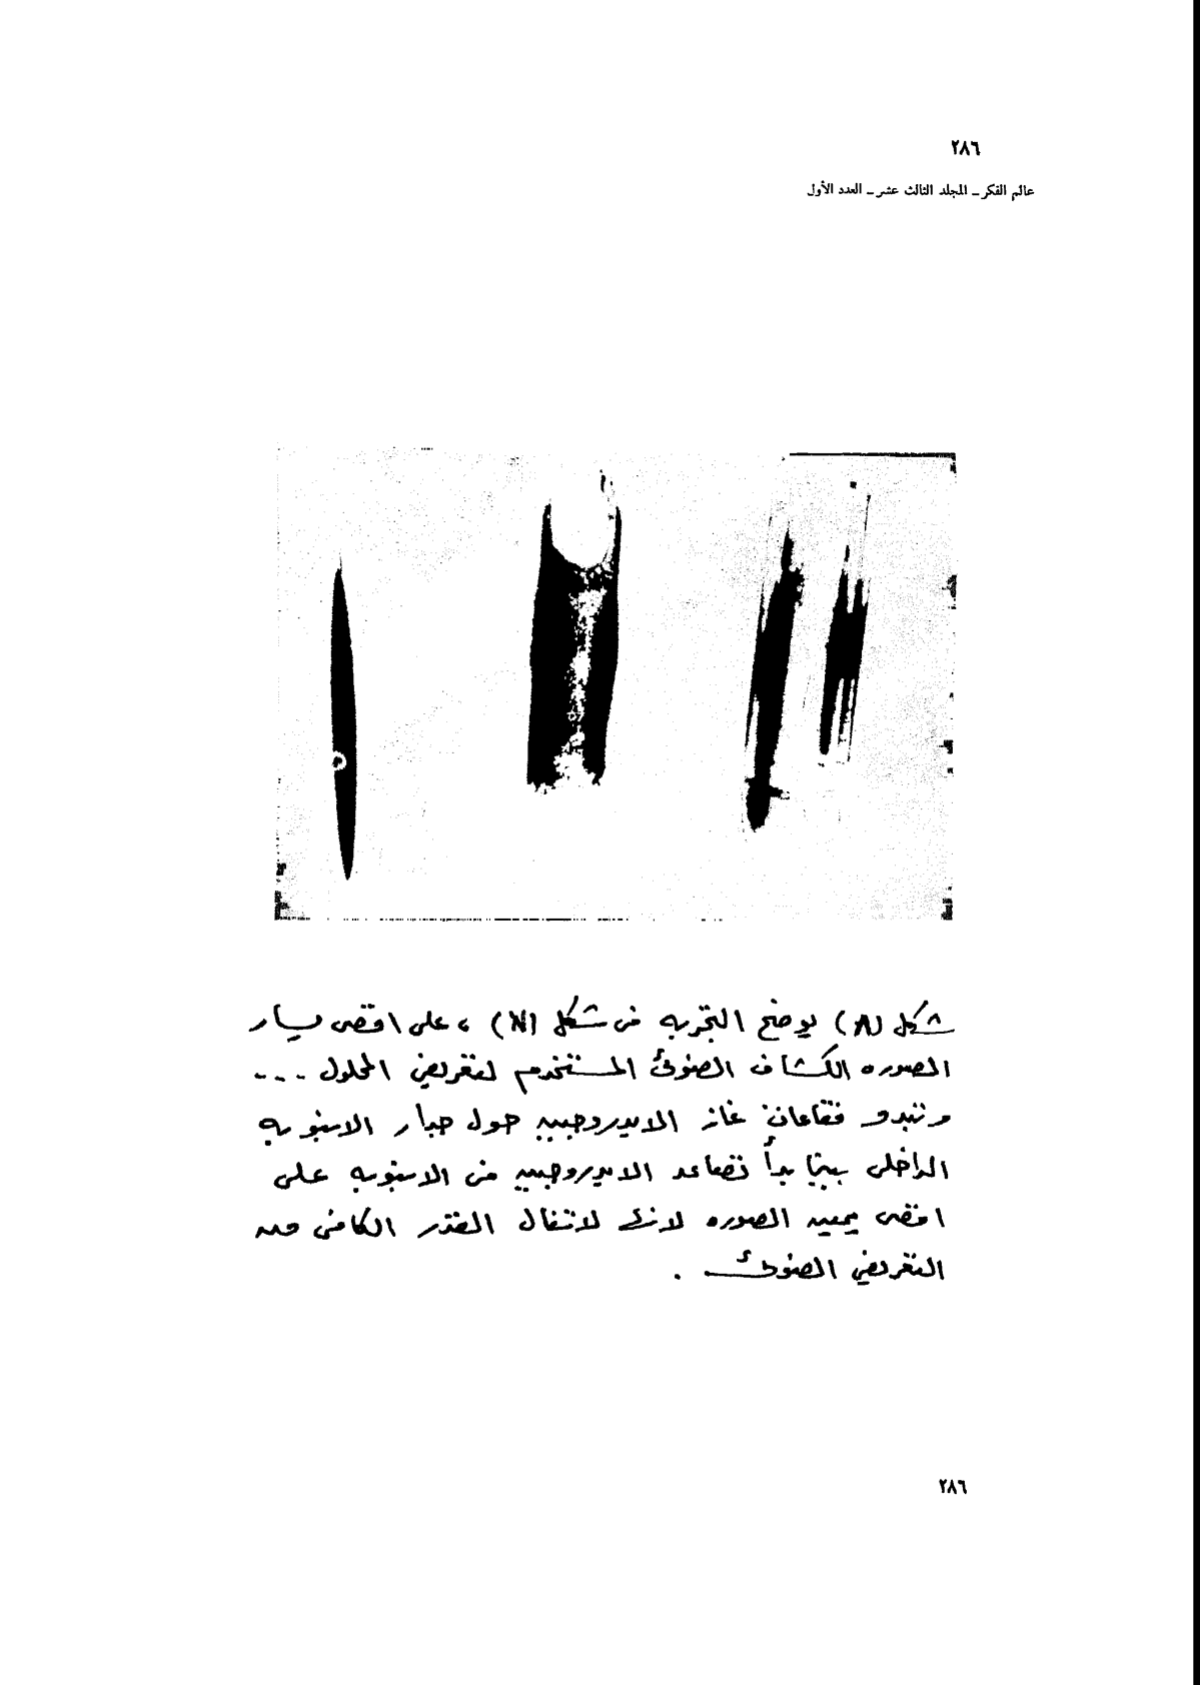 ٢٨٦
عالم الفكر ــ المجلد الثالث عشر ــ العدد الأول
شكل (١٨) يوضح التجربه فى شكل (١٧) ، على اقصى يسار
الصوره الكشاف الضوئى المستخدم لتعريض المحلول ...
وتبدو فقاعات غاز الايدروجين حول جدار الانبوبه
الداخلى بينما بدأ تصاعد الايدروجين من الانبوبه على
اقصى يمين الصوره لانتقال القدر الكافى من
التعريض الضوئى .
٢٨٦